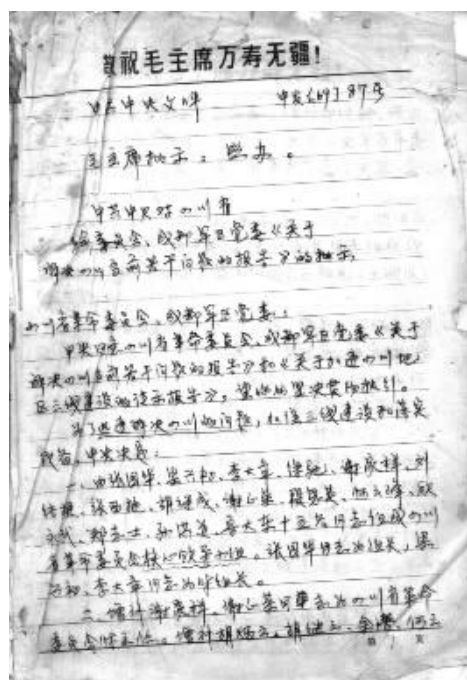 敬祝毛主席万寿无疆！
中共中央文件 中发〔69〕87号
毛主席批示：照办。
中共中央对四川省
革委员会、成都军区党委《关于
解决四川当前若干问题的报告》的批示
四川省革命委员会、成都军区党委：
中央同意四川省革命委员会、成都军区党委《关于
解决四川当前若干问题的报告》和《关于加速四川地
区三线建设的请示报告》，望你们坚决贯彻执行。
为了迅速解决四川的问题，加强三线建设和落实
战备，中央决定：
一、由张国华、梁兴初、李大章、徐驰、谢家祥、刘
结挺、张西挺、胡继成、谢正荣、段思英、何云峰、
郑志士、孙洪道、 十五 同志组成四川
省革命委员会核心领导小组。张国华同志为组长，梁
兴初、李大章同志为副组长。
二、增补谢家祥、谢正荣同志为四川省革命
委员会副主任。增补 胡继成、 何云
第 1 页